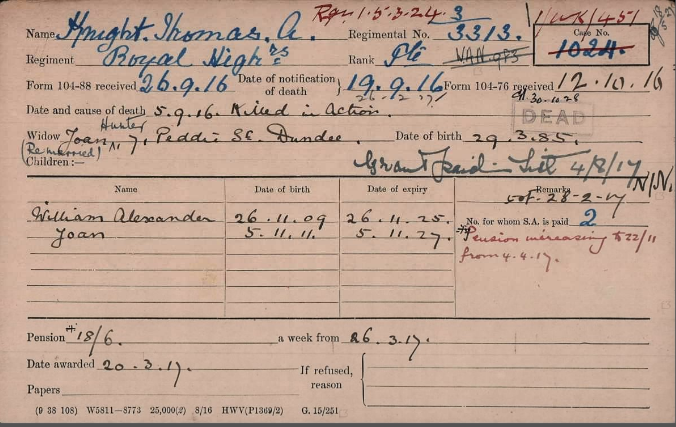 Rqn 1.5.3.24. 3
1/WK/451
Name Knight. Thomas. A. Regimental No. 3313. Case No. 1024.
Regiment Royal Highrs Rank Pte
Form 104-88 received 26.9.16 Date of notification of death } 19.9.16 Form 104-76 received 12.10.16
26.12.17
30.10.28
Date and cause of death 5.9.16. Killed in Action. DEAD
Hunter
Widow Joan, 7, Peddie St. Dundee. Date of birth 29.3.85.
(Remarried)
Children:— Grant paid 4/8/17
Name Date of birth Date of expiry Remarks
28-2-17
William Alexander 26.11.09 26.11.25. No. for whom S.A. is paid 2
Joan 5.11.11. 5.11.27. *Pension increasing to 22/11
from 4.4.17.
Pension *18/6. a week from 26.3.17.
Date awarded 20.3.17. If refused, reason
Papers
(9 38 108) W5811—8773 25,000(2) 8/16 HWV(P1369/2) G. 15/251